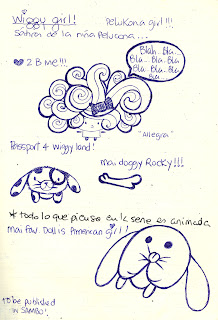 Wiggy girl!
Pelukona girl!!!
de la niña Pelucona...
♥ 2 B me!!!
Blah.. Bla..
Bla.. Bla.. Bla
Bla.. Bla.. Bla
Bla.. Bla
"Allegra"
Passport 4 wiggy land!
mai doggy Rocky!!!
* todo lo que piensa en la serie es animada
mai fav. Doll is American girl!
TO be published
in SAMBO!